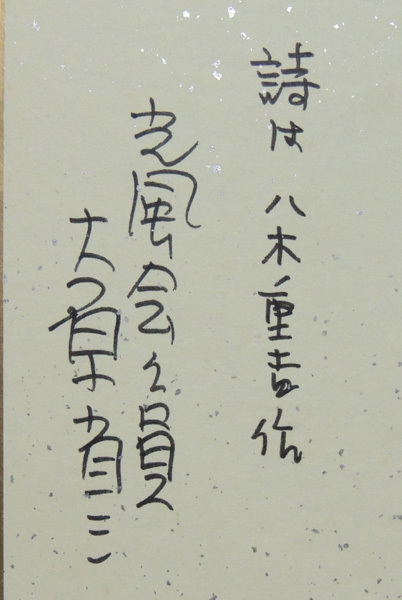 詩は 八木重吉作
光風会々員
大原省三